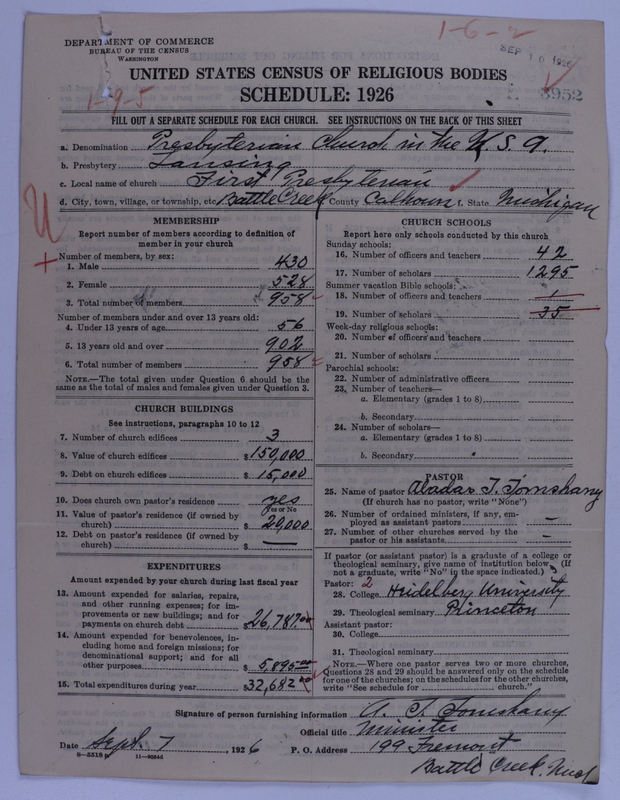 1-6-2
DEPARTMENT OF COMMERCE
BUREAU OF THE CENSUS
WASHINGTON
SEP 10 1926
UNITED STATES CENSUS OF RELIGIOUS BODIES
SCHEDULE: 1926
1-9-5
3952
FILL OUT A SEPARATE SCHEDULE FOR EACH CHURCH. SEE INSTRUCTIONS ON THE BACK OF THIS SHEET
a. Denomination Presbyterian Church in the U.S.A.
b. Presbytery Lansing
c. Local name of church First Presbyterian
d. City, town, village, or township, etc. Battle Creek County Calhoun f. State Michigan
MEMBERSHIP
Report number of members according to definition of
member in your church
Number of members, by sex:
1. Male 430
2. Female 528
3. Total number of members 958
Number of members under and over 13 years old:
4. Under 13 years of age 56
5. 13 years old and over 902
6. Total number of members 958
NOTE.—The total given under Question 6 should be the
same as the total of males and females given under Question 3.
CHURCH BUILDINGS
See instructions, paragraphs 10 to 12
7. Number of church edifices 3
8. Value of church edifices $150,000
9. Debt on church edifices $15,000
10. Does church own pastor's residence yes
Yes or No
11. Value of pastor's residence (if owned by
church) $20,000
12. Debt on pastor's residence (if owned by
church) $ —
EXPENDITURES
Amount expended by your church during last fiscal year
13. Amount expended for salaries, repairs,
and other running expenses; for im-
provements or new buildings; and for
payments on church debt $26,787.00
14. Amount expended for benevolences, in-
cluding home and foreign missions; for
denominational support; and for all
other purposes $5,895.00
15. Total expenditures during year $32,682.00
CHURCH SCHOOLS
Report here only schools conducted by this church
Sunday schools:
16. Number of officers and teachers 42
17. Number of scholars 1295
Summer vacation Bible schools:
18. Number of officers and teachers 1
19. Number of scholars 35
Week-day religious schools:
20. Number of officers and teachers
21. Number of scholars
Parochial schools:
22. Number of administrative officers
23. Number of teachers—
a. Elementary (grades 1 to 8)
b. Secondary
24. Number of scholars—
a. Elementary (grades 1 to 8)
b. Secondary
PASTOR
25. Name of pastor Aladar T. Tomshany
(If church has no pastor, write "None")
26. Number of ordained ministers, if any, em-
ployed as assistant pastors —
27. Number of other churches served by the
pastor or his assistants —
If pastor (or assistant pastor) is a graduate of a college or
theological seminary, give name of institution below. (If
not a graduate, write "No" in the space indicated.)
Pastor: 2
28. College Heidelberg University
29. Theological seminary Princeton
Assistant pastor:
30. College
31. Theological seminary
NOTE.—Where one pastor serves two or more churches,
Questions 28 and 29 should be answered only on the schedule
for one of the churches; on the schedules for the other churches,
write "See schedule for church."
Signature of person furnishing information A. T. Tomshany
Official title Minister
Date Sept. 7, 1926 P. O. Address 199 Fremont
8-5518 11-9264d
Battle Creek, Mich